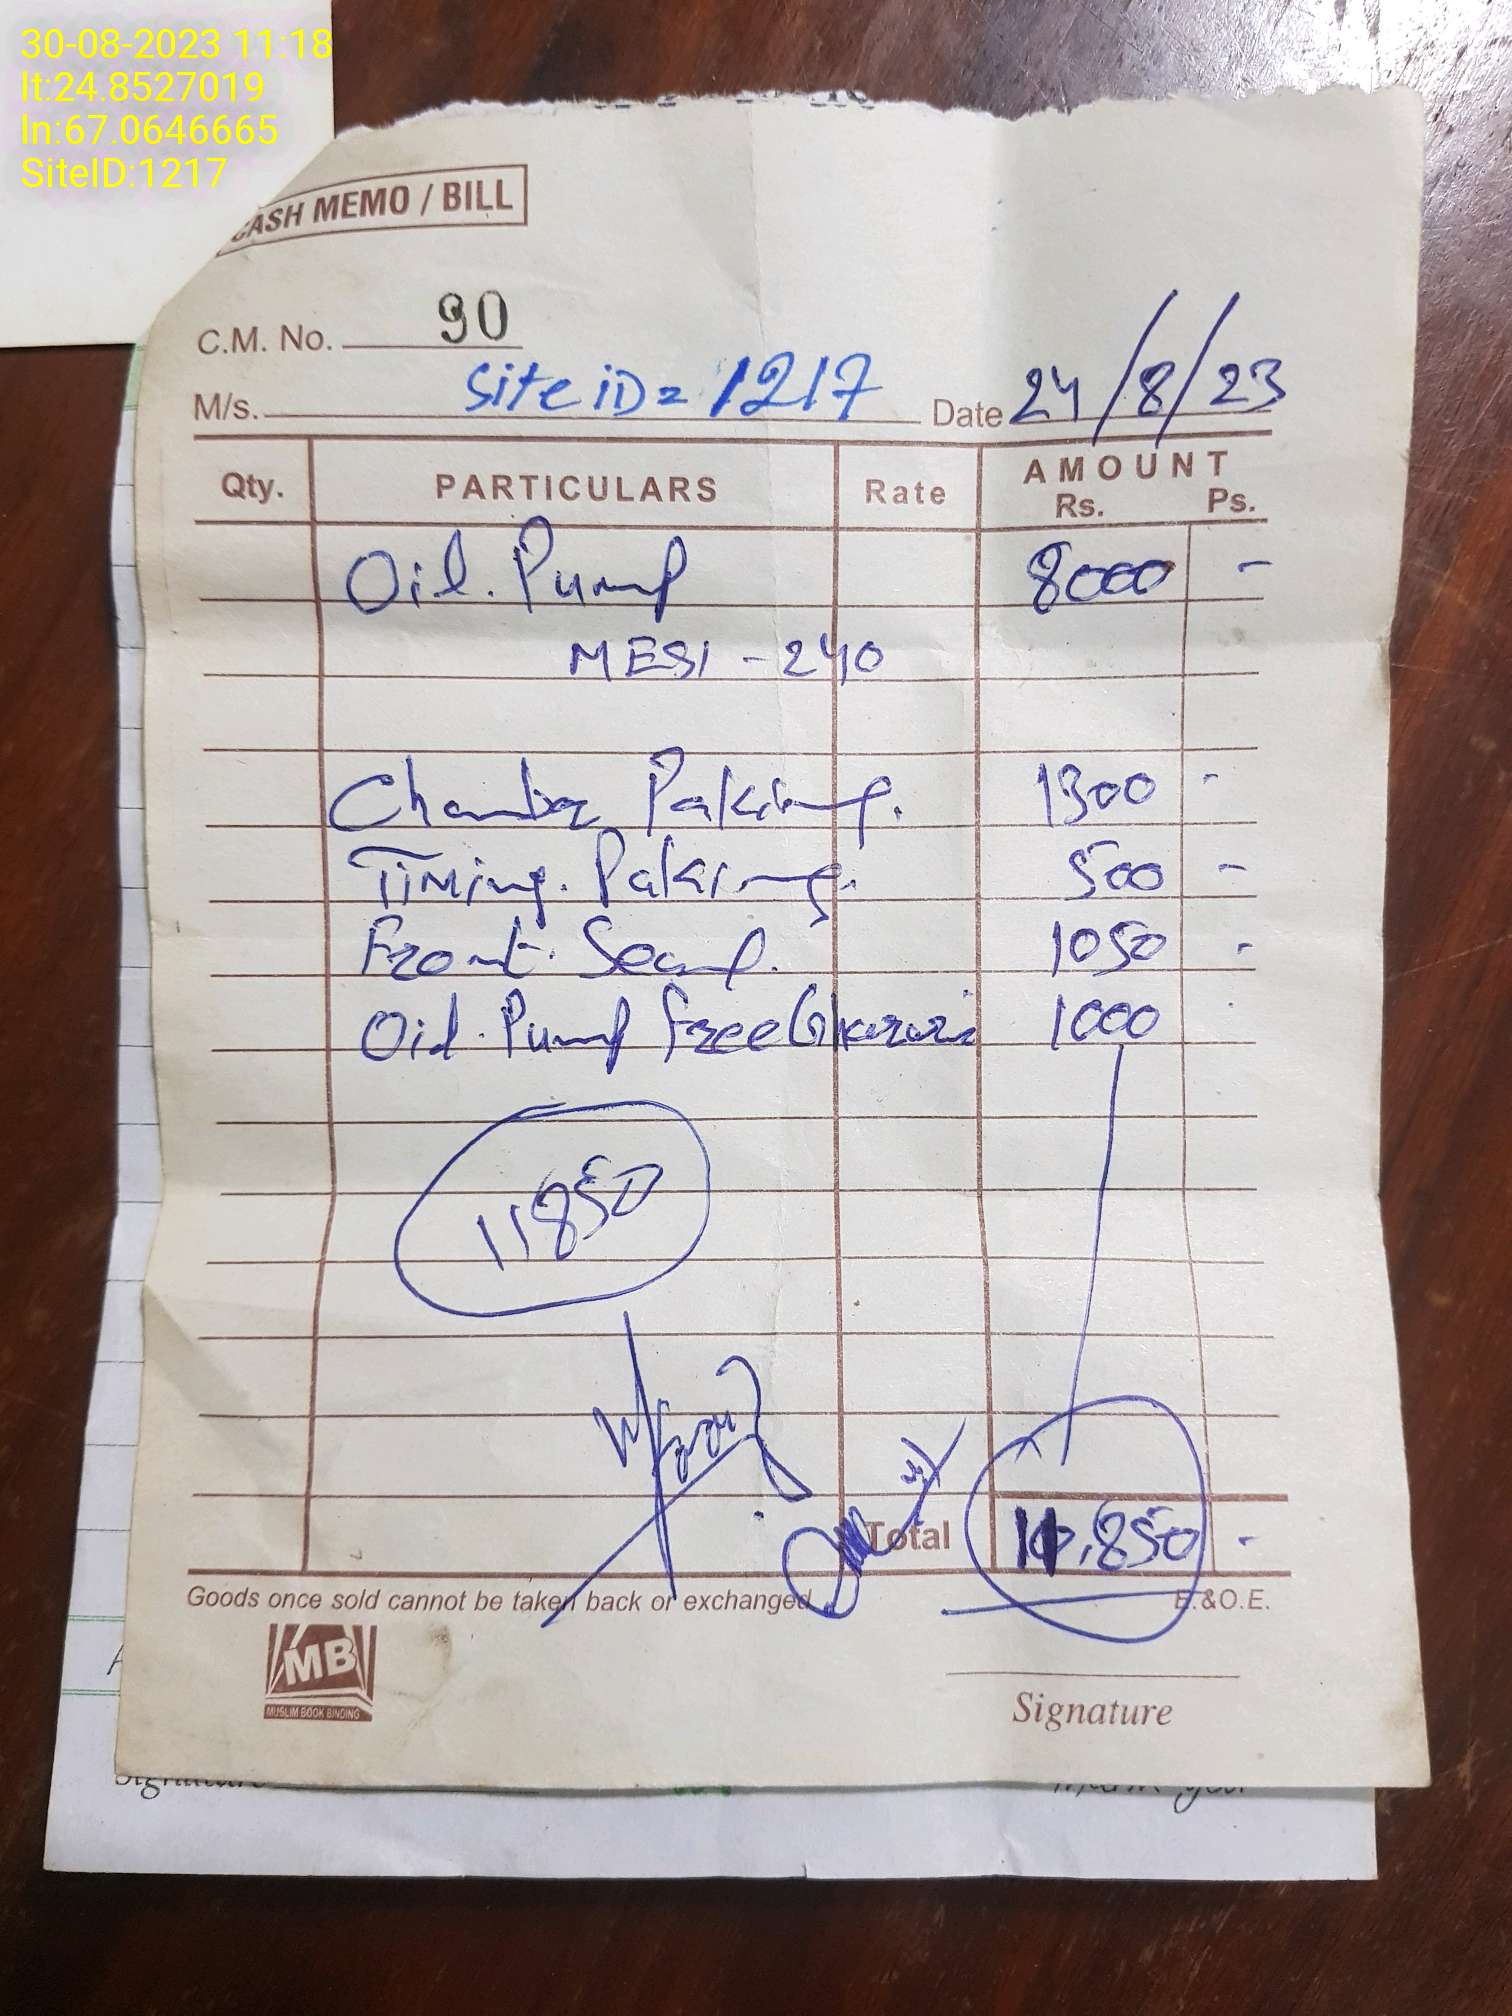 30-08-2023 11:18
lt:24.8527019
ln:67.0646665
SiteID:1217
CASH MEMO / BILL
C.M. No. 90
M/s. Site iD = 1217 Date 24/8/23
Qty. PARTICULARS Rate AMOUNT
Rs. Ps.
Oil. Pump 8000 -
MESI - 240
Chamber Paking. 1300 -
Timing. Paking. 500 -
Front. Seal. 1050 -
Oil. Pump free Gharari 1000
11850
Total 11,850 -
Goods once sold cannot be taken back or exchanged. E.&O.E.
MB
MUSLIM BOOK BINDING
Signature
Signature